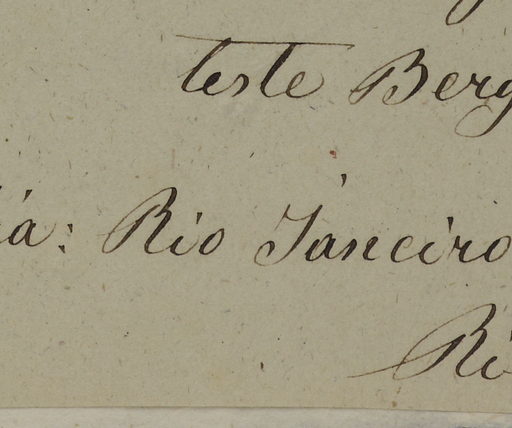 teste Berg
ia: Rio Janeiro
Ri